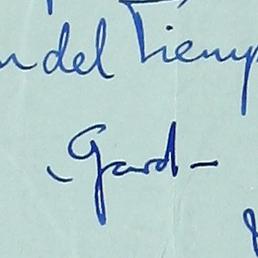 del Tiemp
-Gard-